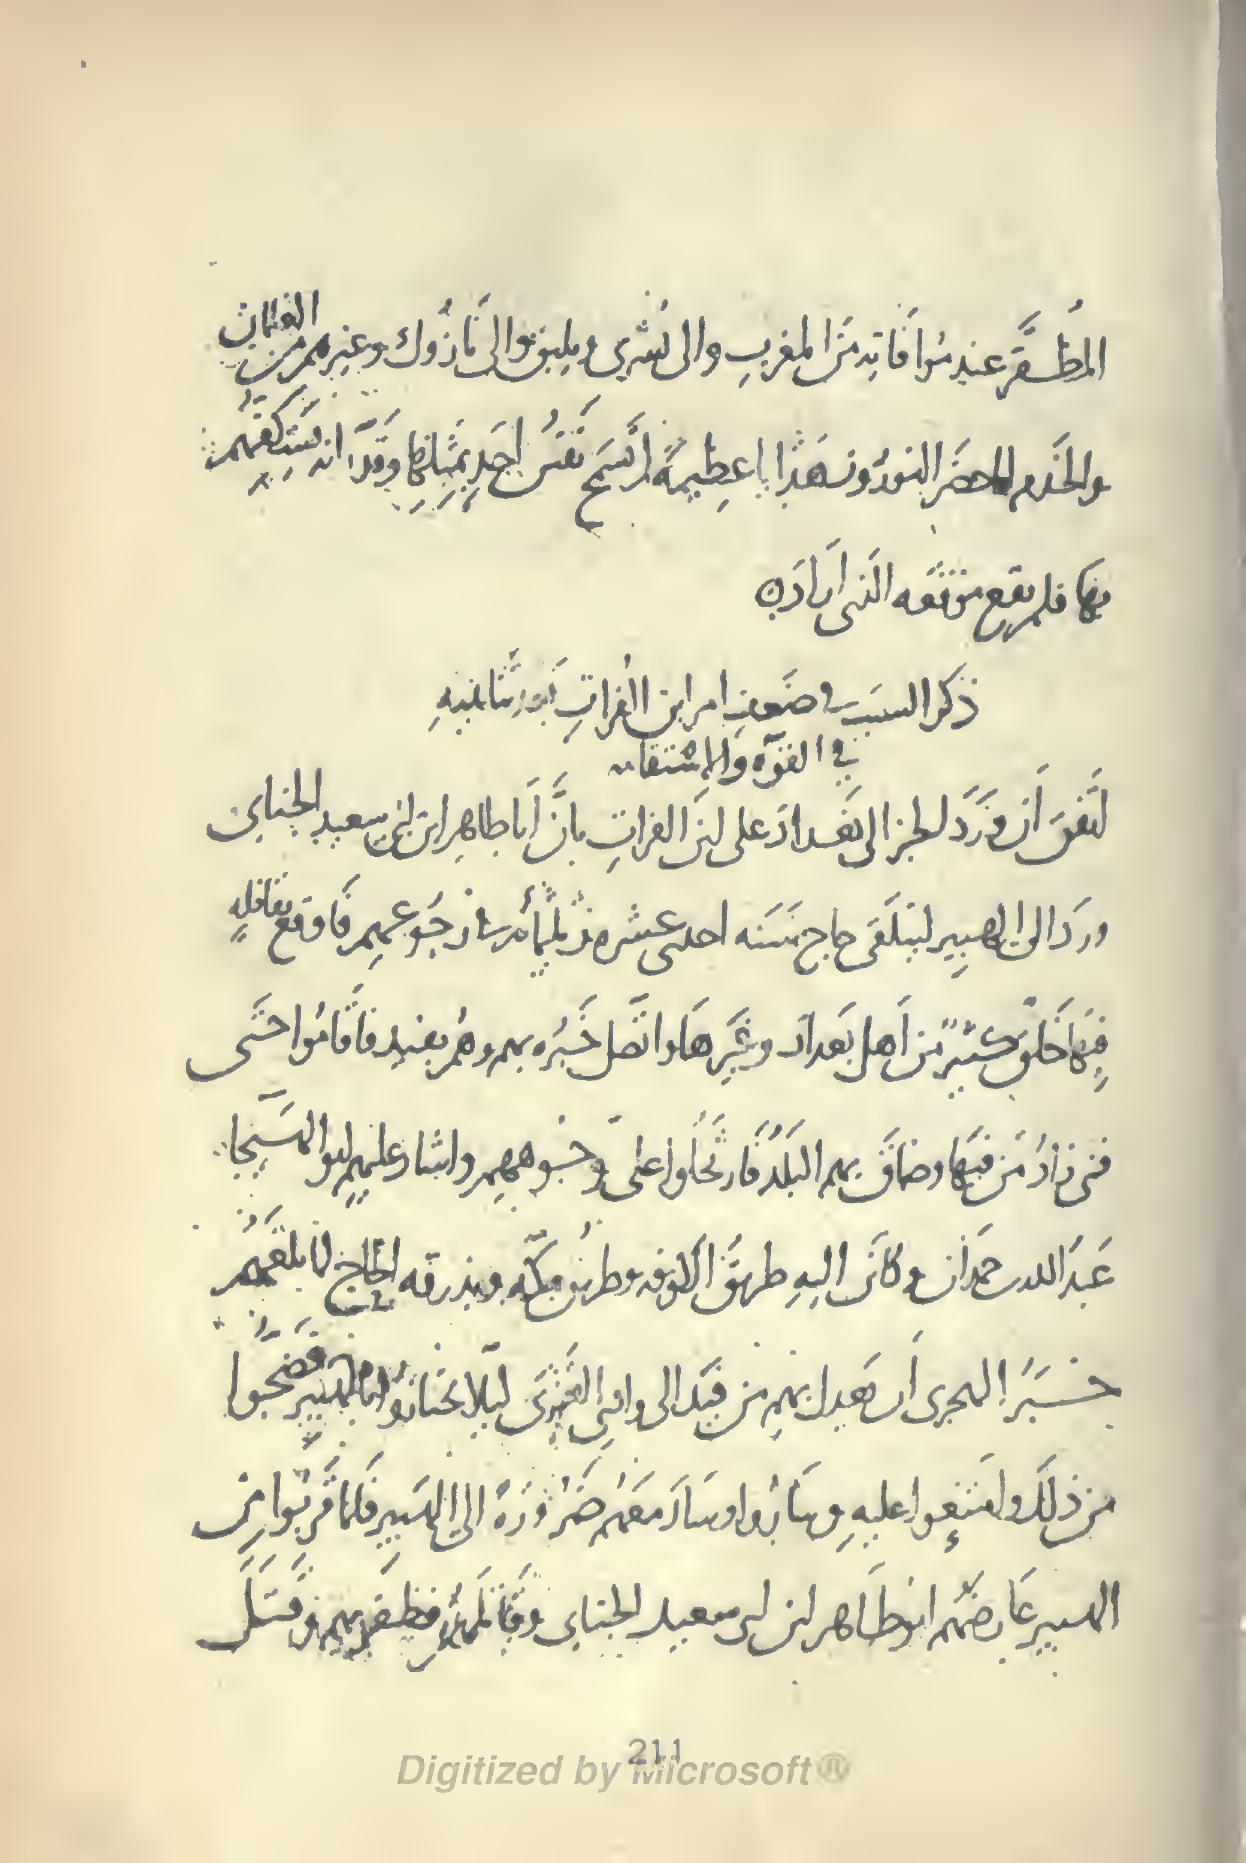 المُظفَّر عند مُوافاته مَنَ المغربِ والى نُشرى ويلبق والى نَازُوك وغيرهم من الغلمان
والخَدم الحضَر البَوَدُ ونهَذا عظيمةً لم تسمَح نَفسُ احَد بمثلها وقَدَّر انه يَستكفّهم
بها فلم يقع موقعه الَّذى أَرادَه
ذكر السبَب فى ضَعف امر ابن الفُراتِ بَعد تَناهيهِ
فى القوّة والاستقامه
اتَّفقَ أَن وَرَدَ الخبر الى بَغداذ على ابنَ الفراتِ بانَّ أَبا طاهِر ابن ابى سعيد الجنابى
ورَدَ الى الهبيِر ليتلَقى حاج سَنَه احدى عشره وثلثمائه فى رجُوعهم فَاوقعَ بقافلهٍ
فيهَا خَلقٌ كثيرٌ من اهل بَغداد وغيَرِهَا واتّصل خَبَرُه بهم وهُم بفيد فاقَامُوا حتَى
فنى زادُ مَن فيهَا وضَاقَ بهم البَلَدُ فَارتَحلُوا على وجُوههِم واشار عليهم ابو الهَيجا
عَبدَ الله بن حمَدان وكانَ اليهِ طريقَ الكوفه وطريق مكّه وبذرقه الحاج لمَّا بلغهُم
خبَرُ الهجرى أَن يَعدل بهم من فَيد الى وادى القُرَى ليلا يجتازُوا بالهبير فَضجُّوا
من ذلَك وامتنعوا عليهِ وسَارُوا وسَارَ معهُم ضَرُورَهً الى الهَبير فَلما قَربُوا من
الهبير عَارضَهُم ابو طَاهر ابن ابى سعيد الجنابى وقَاتَلهُمْ فظَفِر بهم وقَتلَ
211
Digitized by Microsoft®